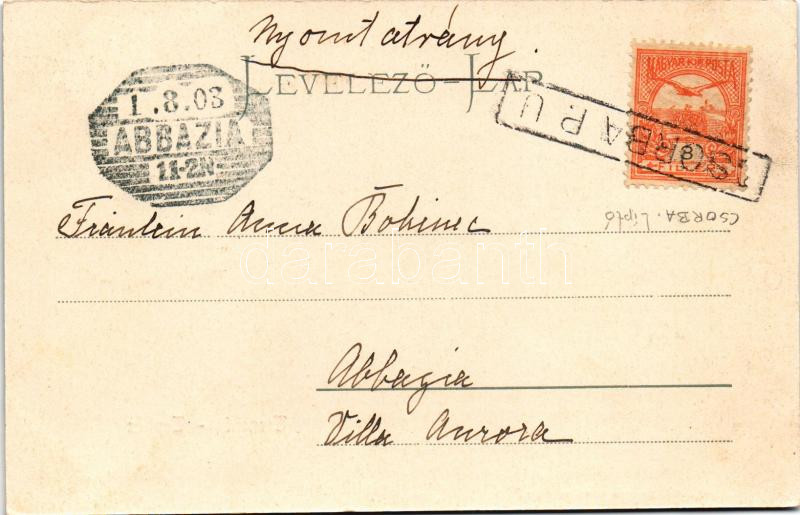 Nyomtatvány.
LEVELEZŐ-LAP
1.8.03
ABBAZIA
11-2N
MAGYAR KIR. POSTA
CSORBA P. U.
CSORBA. Liptó
Fräulein Anna Bohinec
darabanth
Abbazia
Villa Aurora